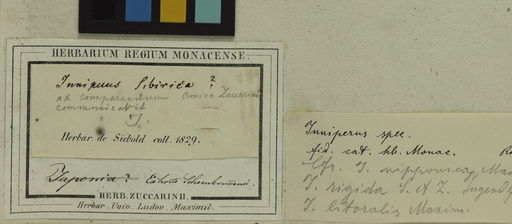 HERBARIUM REGIUM MONACENSE.
Juniperus Sibirica ?
ad comparandum amice Zuccarini
communicavit
J.
Herbar. de Siebold coll. 1829.
Japonia? —
HERB. ZUCCARINII.
Herbar. Univ. Ludov. Maximil.
Juniperus spec.
fid. cat. hb. Monac.
Cfr. J. nipponica Max
J. rigida S. et Z.
J. litoralis Maxim.